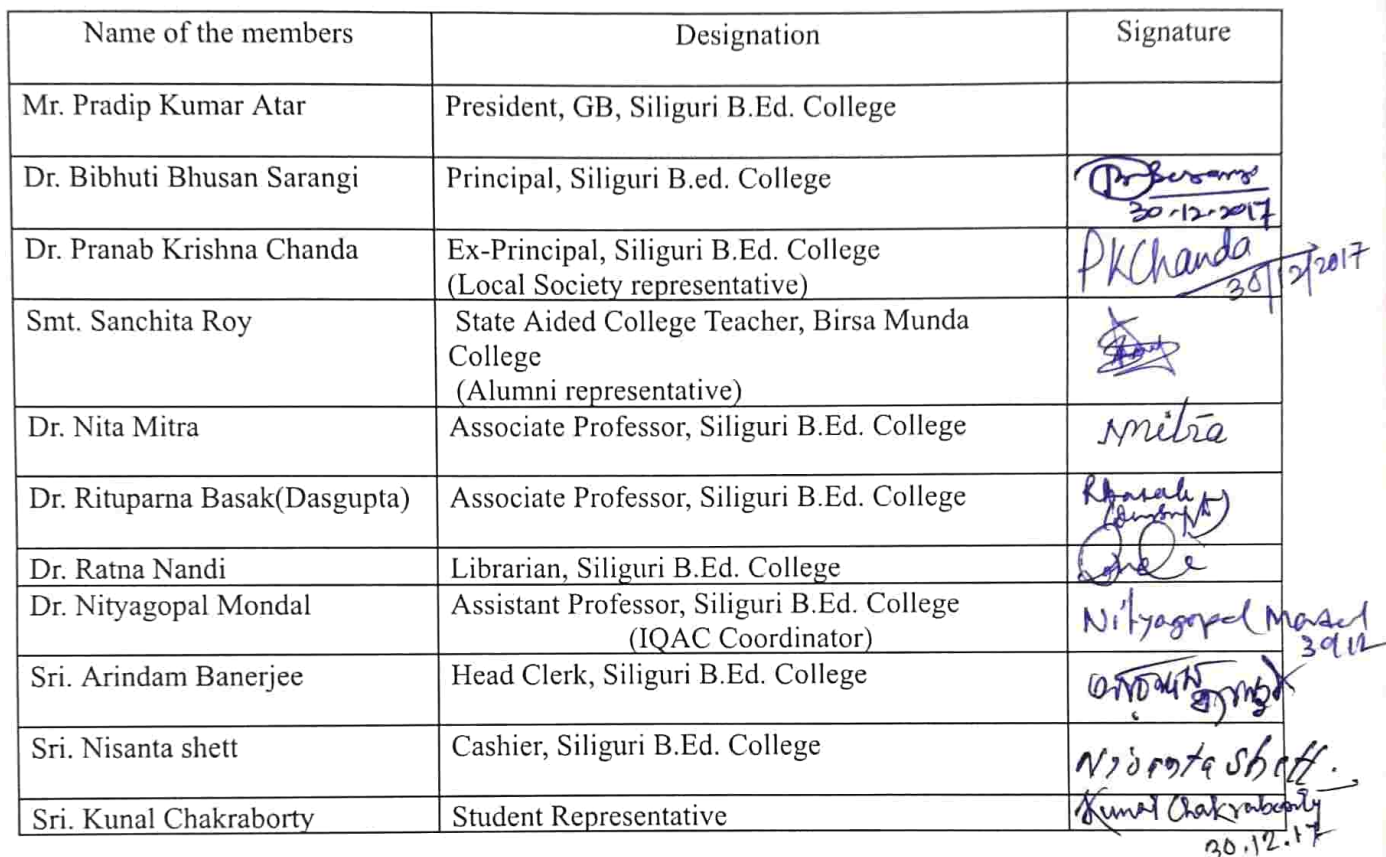 Name of the members Designation Signature
Mr. Pradip Kumar Atar President, GB, Siliguri B.Ed. College
Dr. Bibhuti Bhusan Sarangi Principal, Siliguri B.ed. College
30.12.2017
Dr. Pranab Krishna Chanda Ex-Principal, Siliguri B.Ed. College PKChanda
(Local Society representative) 30/12/2017
Smt. Sanchita Roy State Aided College Teacher, Birsa Munda
College
(Alumni representative)
Dr. Nita Mitra Associate Professor, Siliguri B.Ed. College NMitra
Dr. Rituparna Basak(Dasgupta) Associate Professor, Siliguri B.Ed. College RBasak
Dr. Ratna Nandi Librarian, Siliguri B.Ed. College
Dr. Nityagopal Mondal Assistant Professor, Siliguri B.Ed. College Nityagopal Mondal
(IQAC Coordinator) 30/12
Sri. Arindam Banerjee Head Clerk, Siliguri B.Ed. College
Sri. Nisanta shett Cashier, Siliguri B.Ed. College Nisanta Shett.
Sri. Kunal Chakraborty Student Representative Kunal Chakraborty
30.12.17